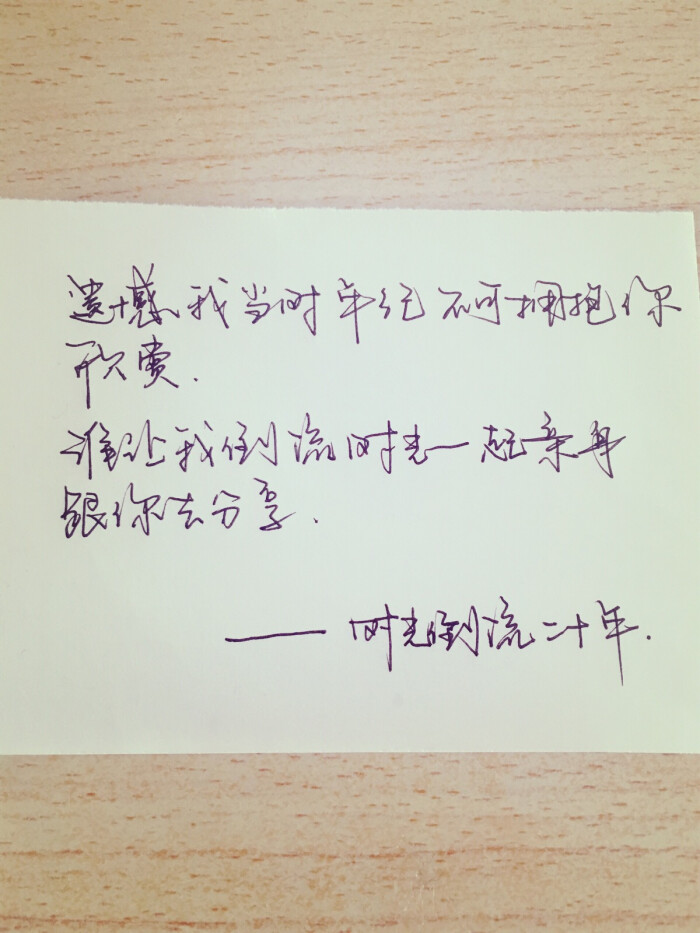 遗憾我当时年纪不可拥抱你
欣赏.
谁让我倒流时光一起亲身
跟你去分享.
——时光倒流二十年.